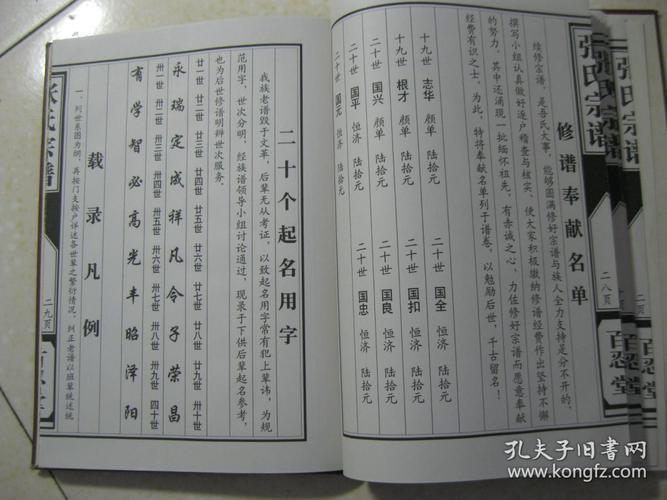 张氏宗谱
二八页
百忍堂
修谱奉献名单
续修宗谱，是吾氏大事，能够圆满修好宗谱与族人全力支持是分不开的。
撰写小组认真做好逐户稽查与核实，使大家积极缴纳修谱经费作出坚持不懈
的努力。其中还涌现一批缅怀祖先，有赤诚之心，力佐修好宗谱而愿意奉献
经费有识之士。为此，特将奉献名单列于谱卷，以勉励后世，千古留名！
十九世 志华 颜单 陆拾元 二十世 国全 恒济 陆拾元
十九世 根才 颜单 陆拾元 二十世 国扣 恒济 陆拾元
二十世 国兴 颜单 陆拾元 二十世 国良 恒济 陆拾元
二十世 国平 恒济 陆拾元 二十世 国忠 恒济 陆拾元
二十世 国元 恒济 陆拾元
二十个起名用字
我族老谱毁于文革，后辈无从考证，以致起名用字常有犯上辈讳，为规
范用字，世次分明，经族谱领导小组讨论通过，现录于下供后辈起名参考，
也为后世修谱明辨世次服务。
廿一世 廿二世 廿三世 廿四世 廿五世 廿六世 廿七世 廿八世 廿九世 卅十世
永 瑞 定 成 祥 凡 令 子 荣 昌
卅一世 卅二世 卅三世 卅四世 卅五世 卅六世 卅七世 卅八世 卅九世 四十世
育 学 智 必 高 光 丰 昭 泽 阳
载录凡例
一、列世系图为纲，再按门支按户详述各世辈之繁衍情况，纠正老谱以班辈统述统
张氏宗谱
二九页
张氏宗谱
孔夫子旧书网
www.kongfz.com